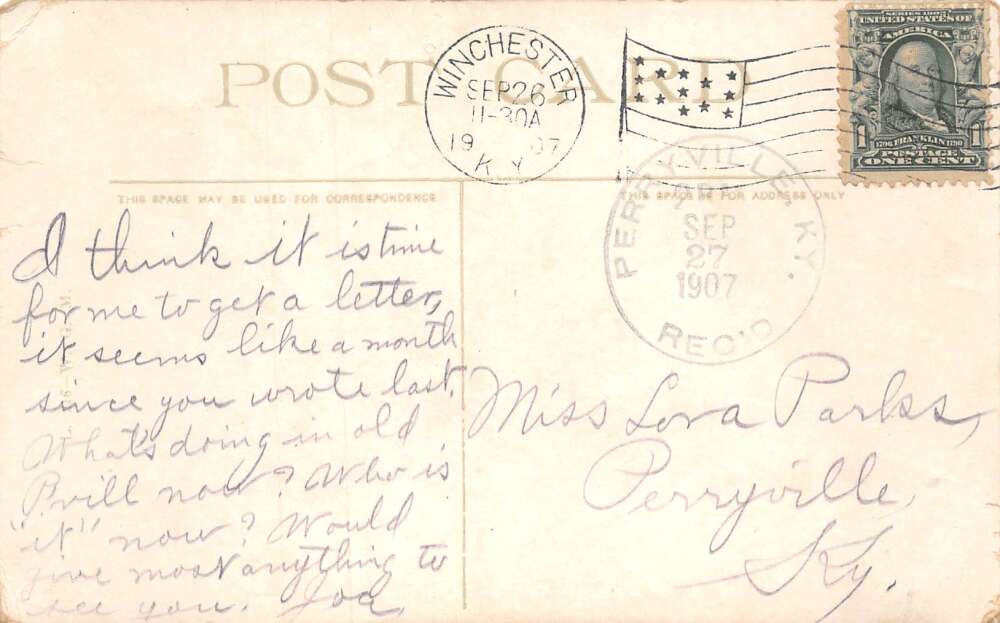 POST CARD
WINCHESTER
SEP 26
11-30A
1907
KY
SERIES 1902
UNITED STATES OF
AMERICA
1 1
1706 FRANKLIN 1790
POSTAGE
ONE CENT
PERRYVILLE, KY.
SEP
27
1907
REC'D
THIS SPACE MAY BE USED FOR CORRESPONDENCE
THIS SPACE IS FOR ADDRESS ONLY
I think it is time
for me to get a letter,
it seems like a month
since you wrote last.
What's doing in old
P.vill now? Who is
"it" now? Would
give most anything to
see you.
Miss Lora Parks,
Perryville,
Ky.